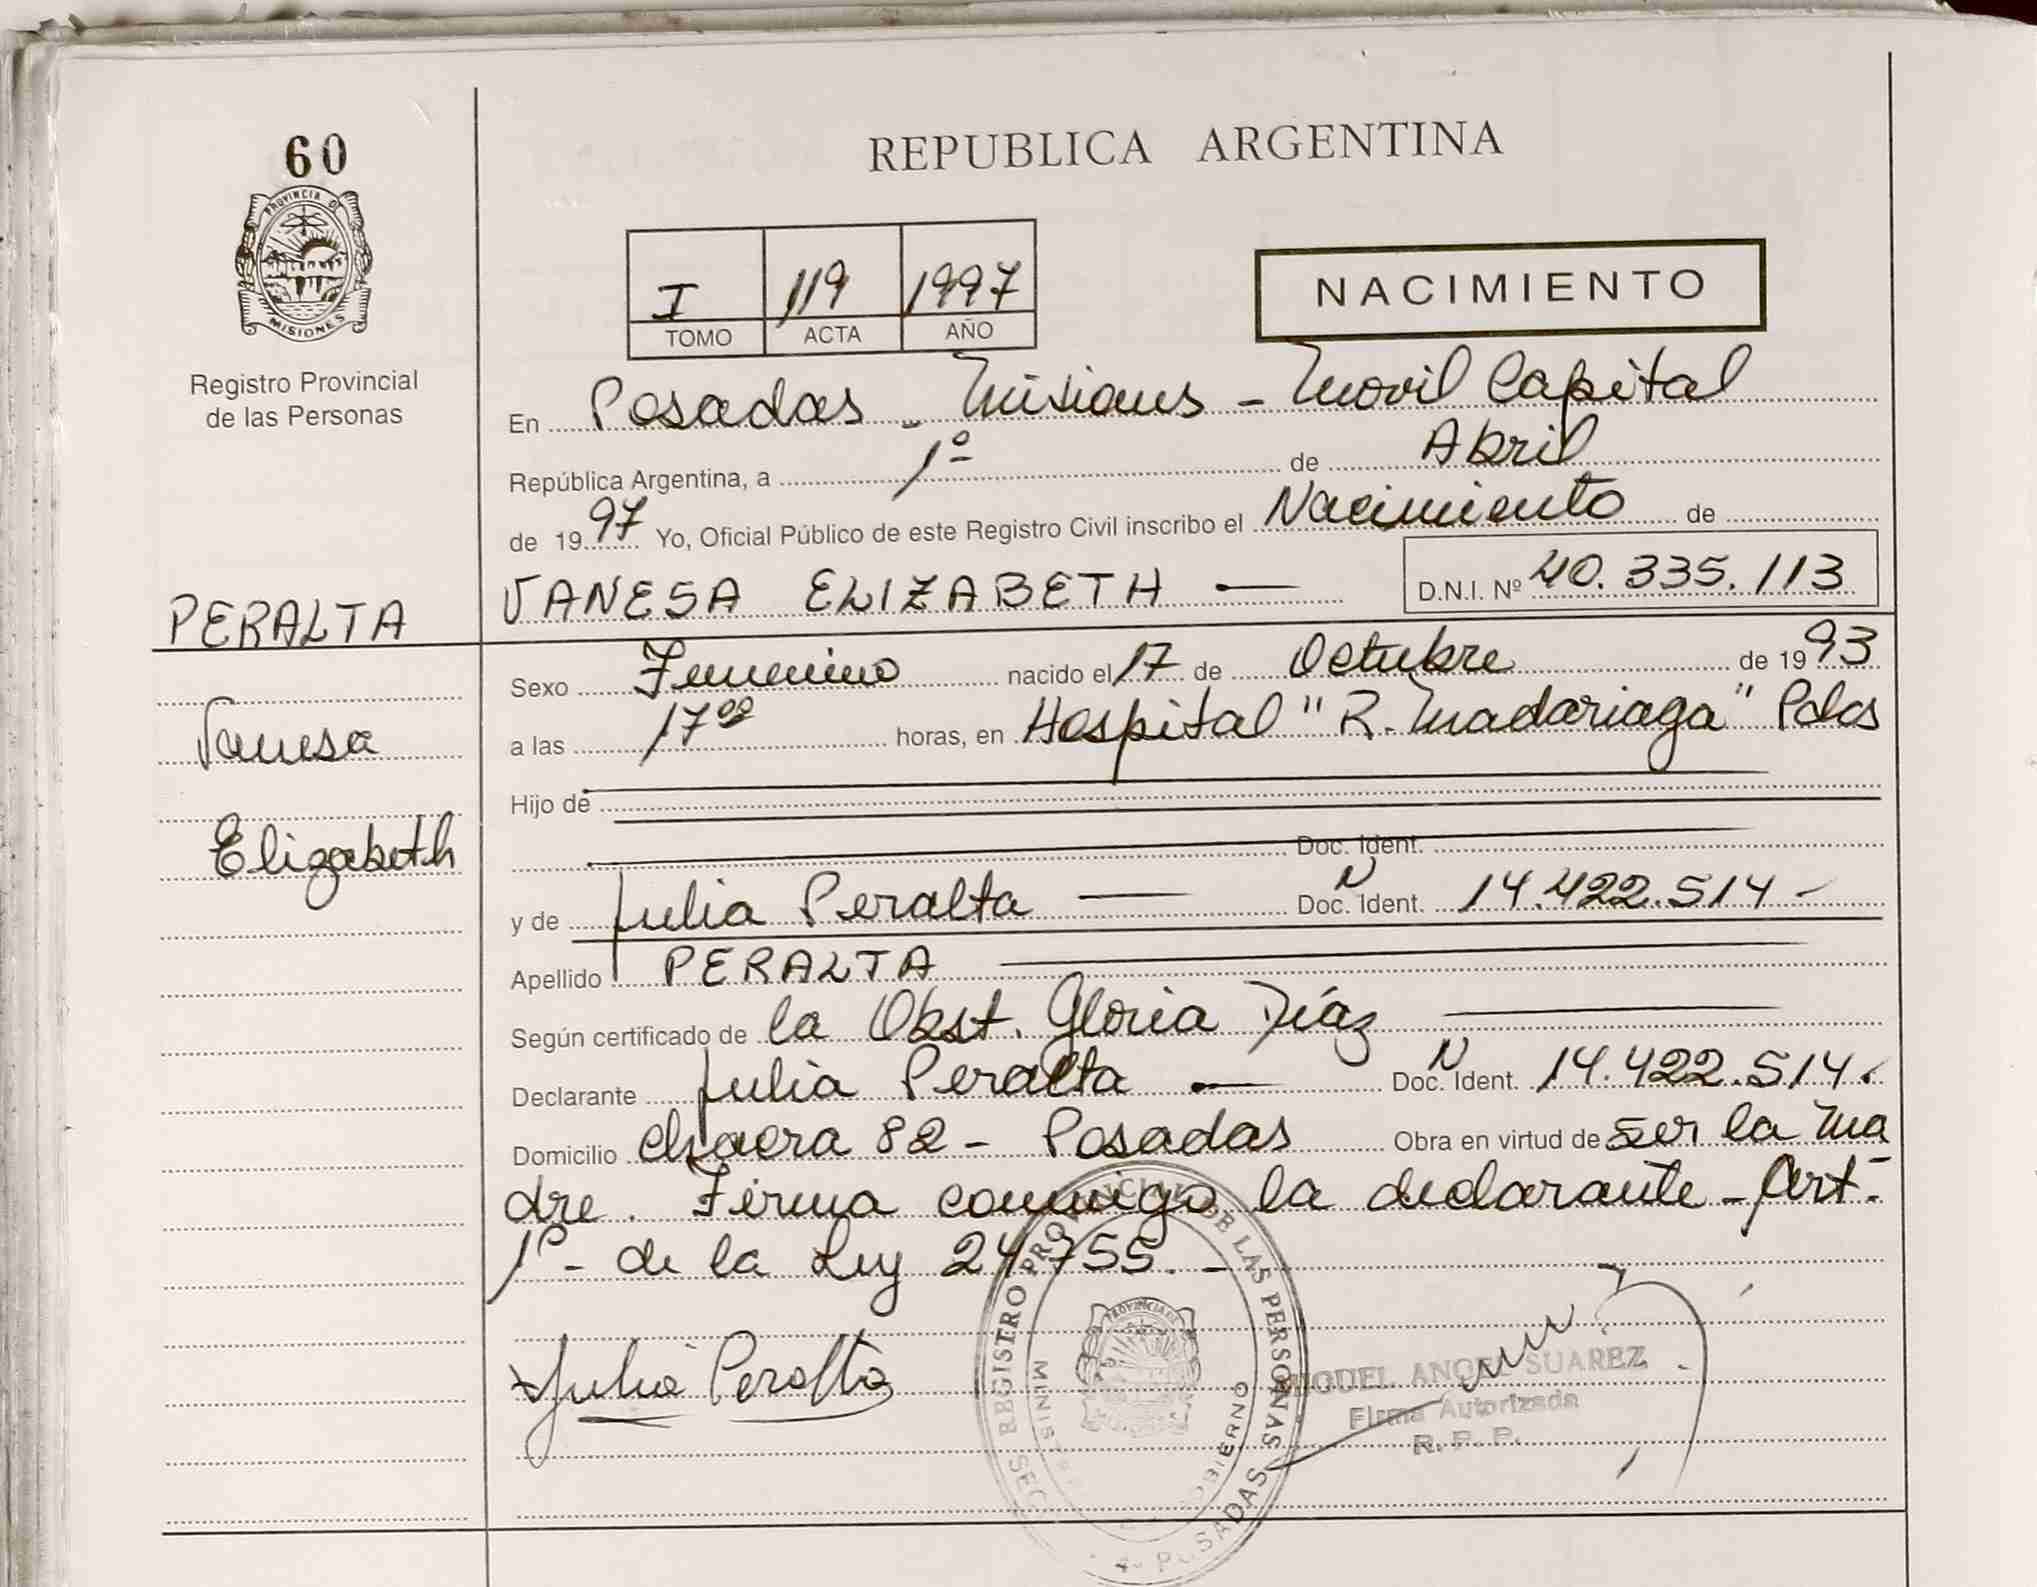 60
PROVINCIA DE
MISIONES
Registro Provincial
de las Personas
PERALTA
Vanesa
Elizabeth
REPUBLICA ARGENTINA
I 119 1997
TOMO ACTA AÑO
NACIMIENTO
En Posadas - Misiones - Movil Capital
República Argentina, a 1º de Abril
de 1997 Yo, Oficial Público de este Registro Civil inscribo el Nacimiento de
VANESA ELIZABETH — D.N.I. Nº 40.335.113
Sexo Femenino nacido el 17 de Octubre de 1993
a las 17 00 horas, en Hospital "R. Madariaga" Pdas
Hijo de
Doc. Ident.
y de Julia Peralta — Doc. N Ident. 14.422.514 -
Apellido PERALTA
Según certificado de la Obst. Gloria Díaz
Declarante Julia Peralta — Doc. N Ident. 14.422.514.
Domicilio chacra 82 - Posadas Obra en virtud de ser la ma
dre. Firma conmigo la declarante - Art.
1º - de la Ley 24755. -
Julia Peralta
REGISTRO PROVINCIAL DE LAS PERSONAS
POSADAS
MIGUEL ANGEL SUAREZ
Firma Autorizada
R. P. P.